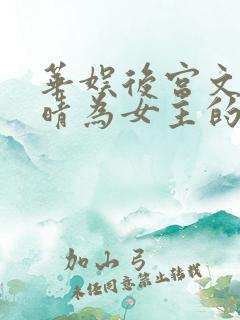 華娛後宮文
晴為女主的
加山弓
未经同意禁止转载